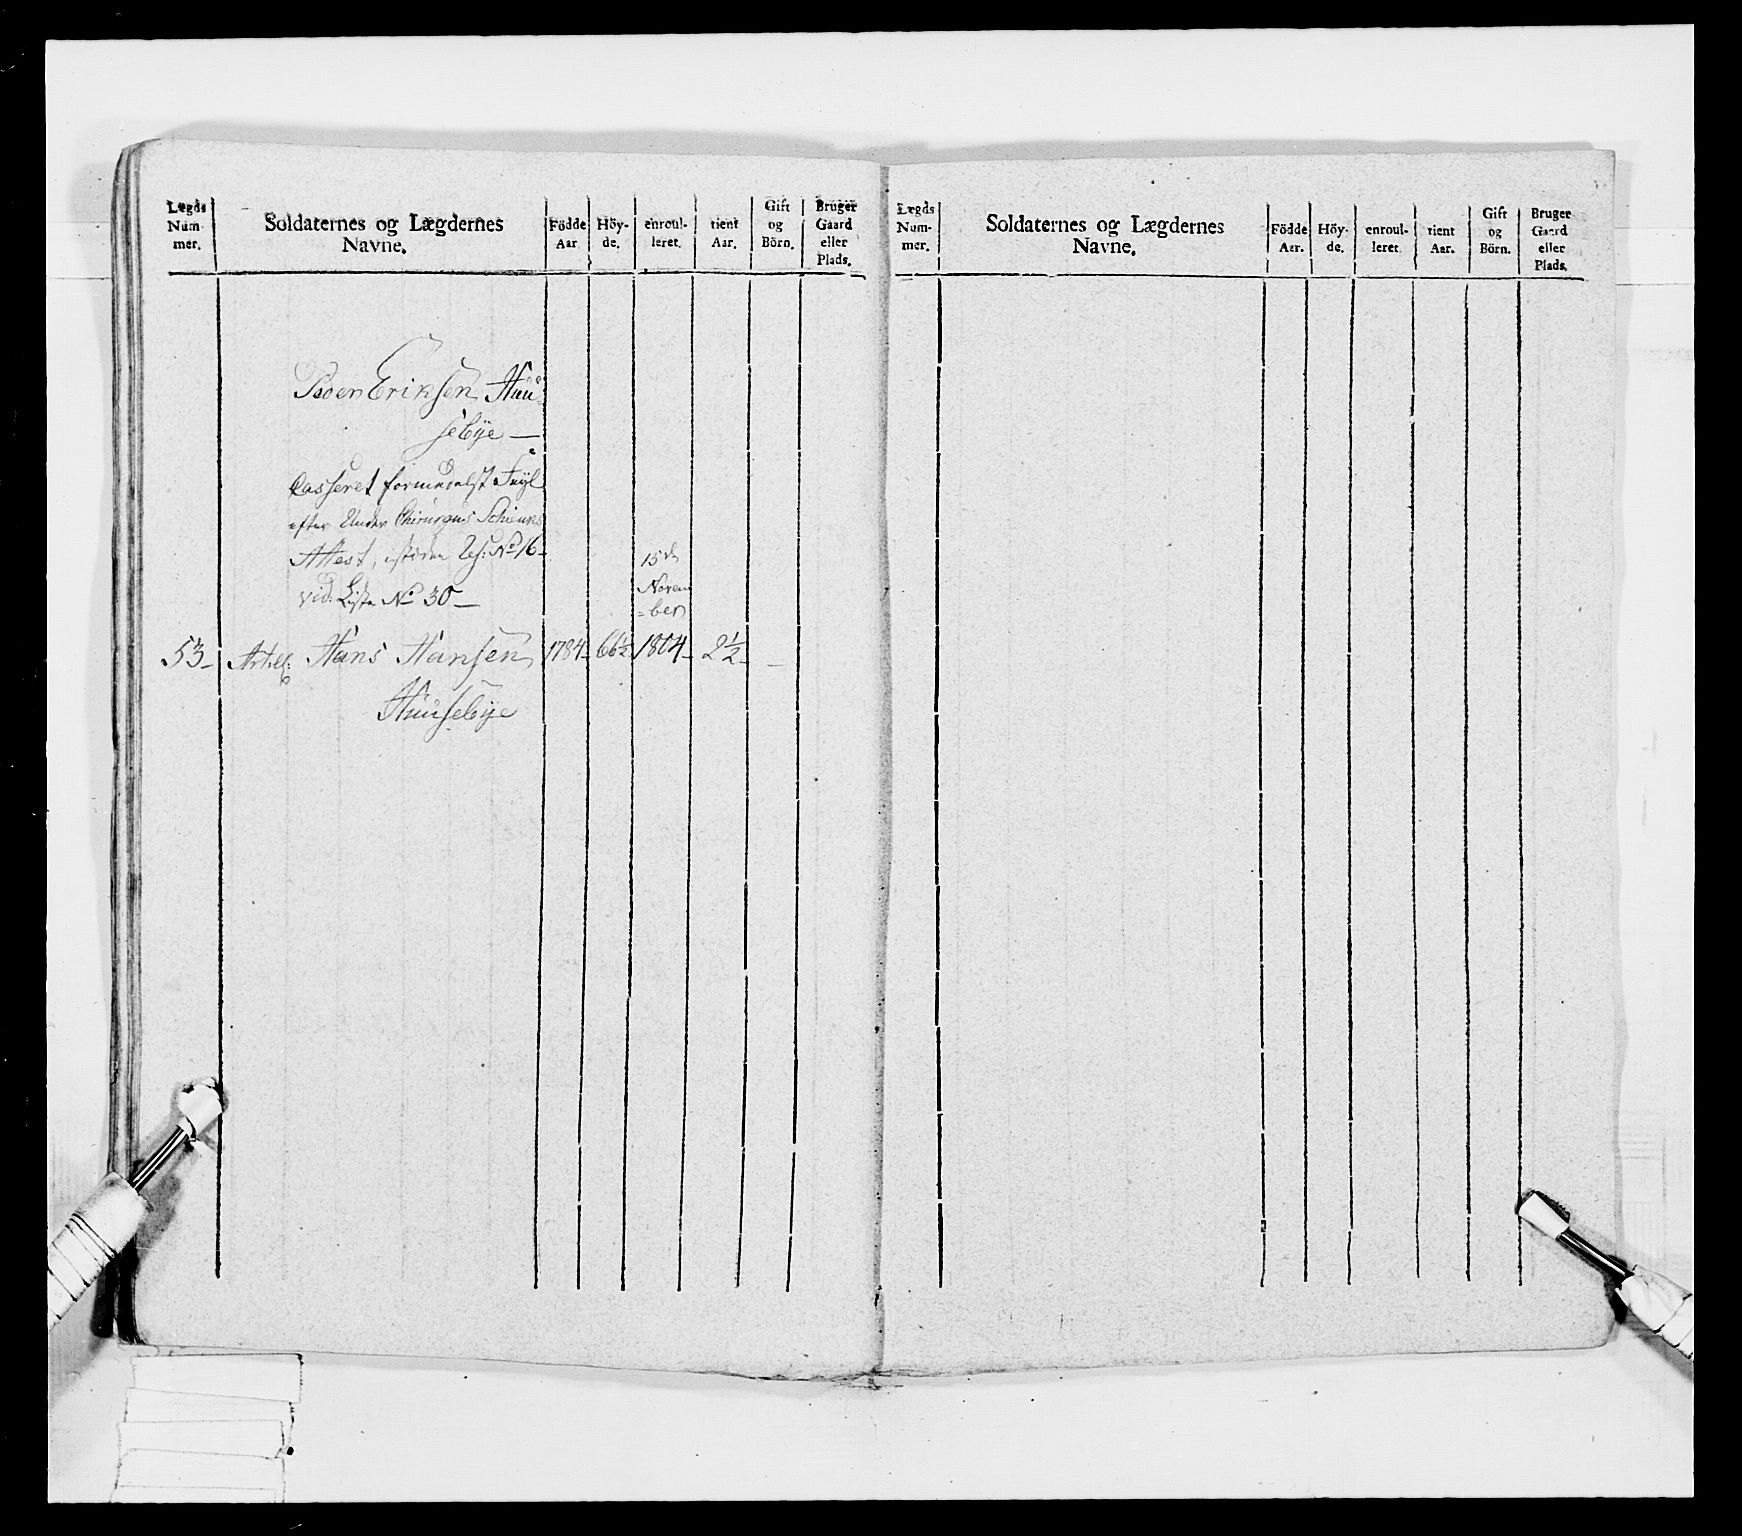 Lægds
Num-
mer.
Soldaternes og Lægdernes
Navne.
Födde
Aar
Höy-
de.
enroul-
leret.
tient
Aar.
Gift
og
Börn.
Bruger
Gaard
eller
Plads.
Eriksen Huu-
sebÿe —
Casseret formedelst Feÿl
efter Under Chirurgus
Attest, No 16-
vid. Liste No 30 —
15de
Novem
=ber
53- Artill: Hans Hansen 1784- 66½ 1804- 2½- —
Huusebÿe
Lægds
Num-
mer.
Soldaternes og Lægdernes
Navne.
Födde
Aar.
Höy-
de.
enroul-
leret.
tient
Aar.
Gift
og
Börn.
Bruger
Gaard
eller
Plads.